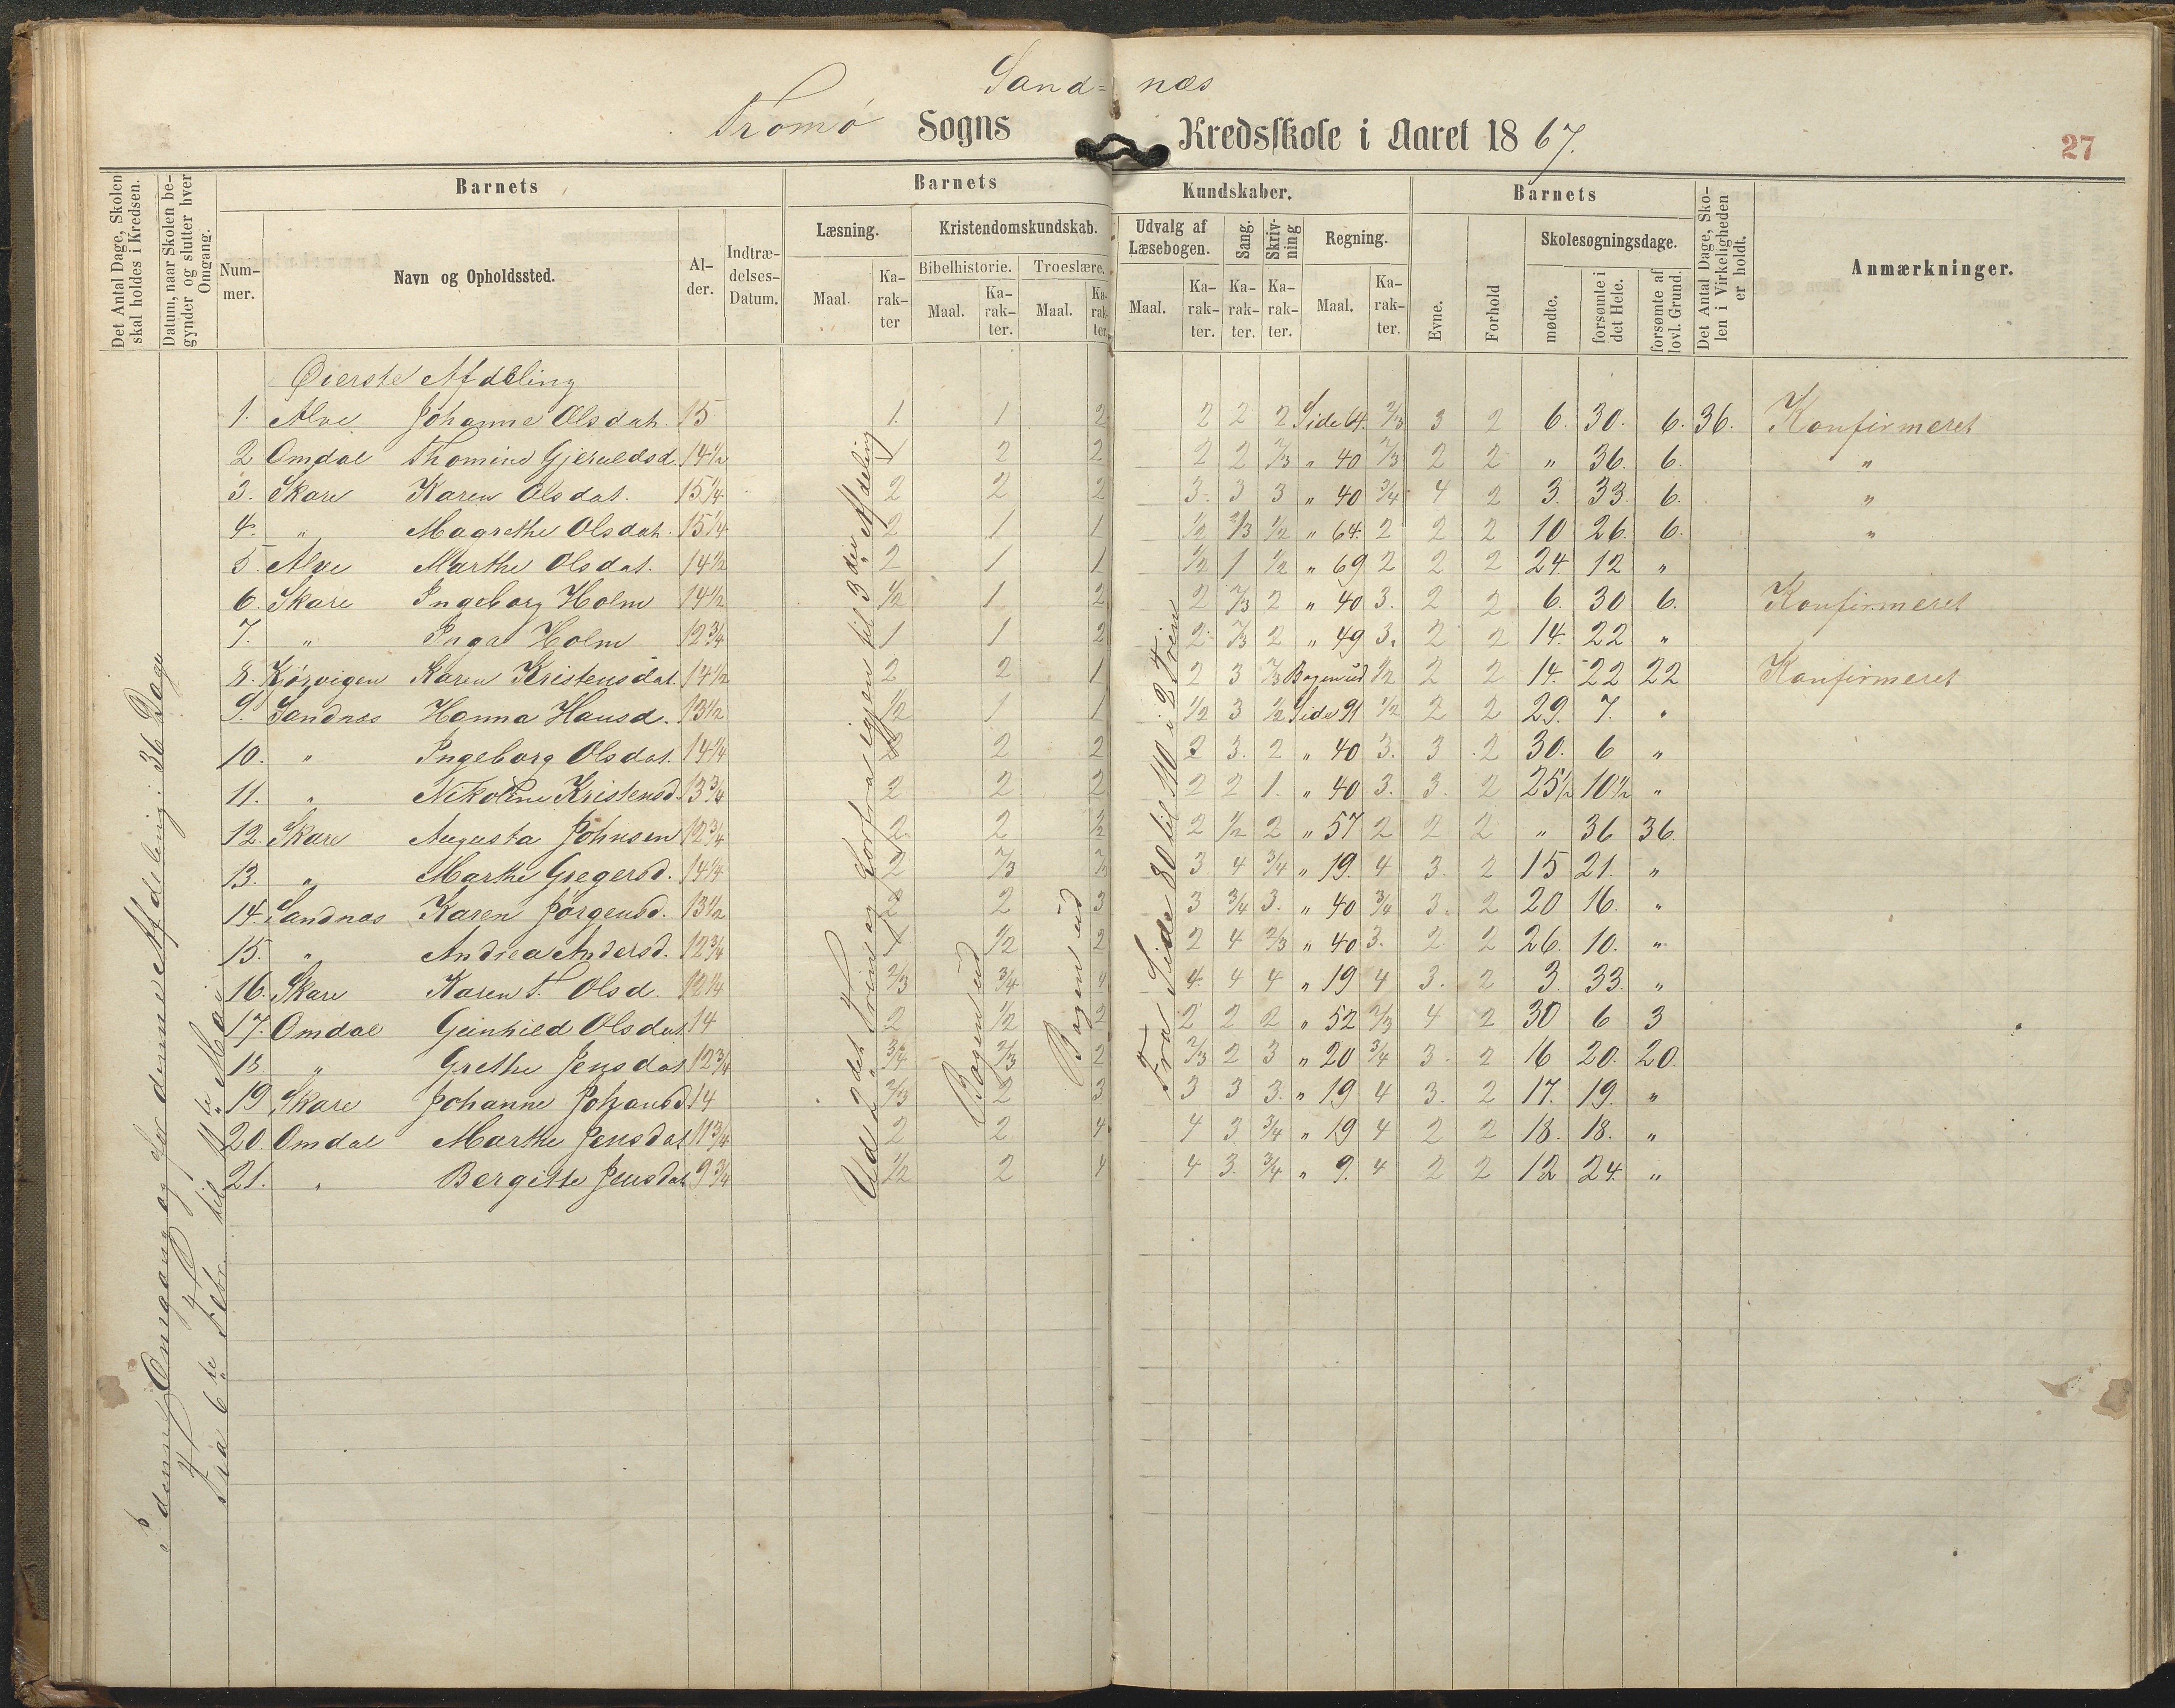 Sand= næs
Tromø Sogns Kredsskole i Aaret 1867.
27
Det Antal Dage, Skolen skal holdes i Kredsen.
Datum, naar Skolen begynder og slutter hver Omgang.
Barnets
Barnets
Kundskaber.
Barnets
Det Antal Dage, Skolen i Virkeligheden er holdt.
Anmærkninger.
Nummer.
Navn og Opholdssted.
Alder.
Indtrædelses-Datum.
Læsning.
Kristendomskundskab.
Udvalg af Læsebogen.
Sang.
Skrivning
Regning.
Evne.
Forhold
Skolesøgningsdage.
Bibelhistorie.
Troeslære.
mødte.
forsømte i det Hele.
forsømte af lovl. Grund.
Maal. Karakter Maal. Karakter. Maal. Karakter. Maal. Karakter. Karakter. Karakter. Maal. Karakter.
Øverste Afdeling
1. Alve Johanne Olsdat. 15 1. 1 2 2 2 2 Side 64. 2/3 3 2 6. 30. 6. 36. Konfirmeret
2 Omdal Thomine Gjeruldsd. 14 1/2 1 2 2 2 2 2/3 " 40 2/3 2 2 " 36. 6. "
3. Skare Karen Olsdat. 15 1/4 2 2 2 3. 3 3 " 40 3/4 4 2 3. 33. 6. "
4. " Magrethe Olsdat. 15 1/4 2 1 1 1/2 2/3 1/2 " 64. 2 2 2 10 26. 6. "
5. Alve Marthe Olsdat. 14 1/2 2 1 1 1/2 1 1/2 " 69 2 2 2 24 12 "
6. Skare Ingeborg Holm 14 1/2 1/2 1 2 2 2/3 2 " 40 3. 2 2 6. 30 6. Konfirmeret
7. " Inga Holm 12 3/4 1 1 2 2 2/3 2 " 49 3. 2 2 14. 22 "
8. Kjørvigen Karen Kristensdat. 14 1/2 2 2 1 2 3 2/3 Bogen ud 1/2 2 2 14. 22 22 Konfirmeret
9. Sandnæs Hanna Hansd. 13 1/2 1/2 1 1 1/2 3 1/2 Side 91 1/2 2 2 29. 7. "
10. " Ingeborg Olsdat. 14 1/4 2 2 2 2 3. 2 " 40 3. 3 2 30. 6 "
11. " Nikoline Kristensd. 13 3/4 2 2 2 2 2 1. " 40 3. 3. 2 25 1/2 10 1/2 "
12. Skare Augusta Johnsen 12 3/4 2. 2 1/2 2 1/2 2 " 57 2 2 2 " 36 36.
13. " Marthe Gregersd. 14 1/4 2 2/3 2/3 3 4 3/4 " 19. 4 3. 2 15 21. "
14. Sandnæs Karen Jørgensd. 13 1/2 2 2 3 3 3/4 3. " 40 3/4 3. 2 20 16. "
15. " Andrea Andersd. 12 3/4 1 1/2 2 2 4 2/3 " 40 3. 2. 2 26. 10. "
16. Skare Karen T. Olsd. 12 1/4 2/3 3/4 4 4. 4 4 " 19 4 3. 2 3. 33. "
17. Omdal Gunhild Olsdat. 14 2 1/2 2 2 2 2 " 52 2/3 4 2 30 6 3
18 " Grethe Jensdat. 12 3/4 3/4 2/3 2 2/3 2 3 " 20 3/4 3. 2 16 20. 20.
19 Skare Johanne Johansd. 14 2/3 2 3 3 3 3. " 19 4 3. 2 17. 19. "
20. Omdal Marthe Jensdat. 11 3/4 2 2 4 4 3 3/4 " 19 4 2 2 18. 18. "
21. " Bergitte Jensdat. 9 3/4 1/2 2 4 4 3. 3/4 " 9. 4 2 2 12 24. "
i denne Omgang og for denne Afdeling: 36 Dage
Fra 6te Febr. til 11te Mai
Ud 2det Trin og Fortra igjen til 3die Afdeling
Bogen ud
Bogen ud
Fra Side 80 til 110 i 2 Trin